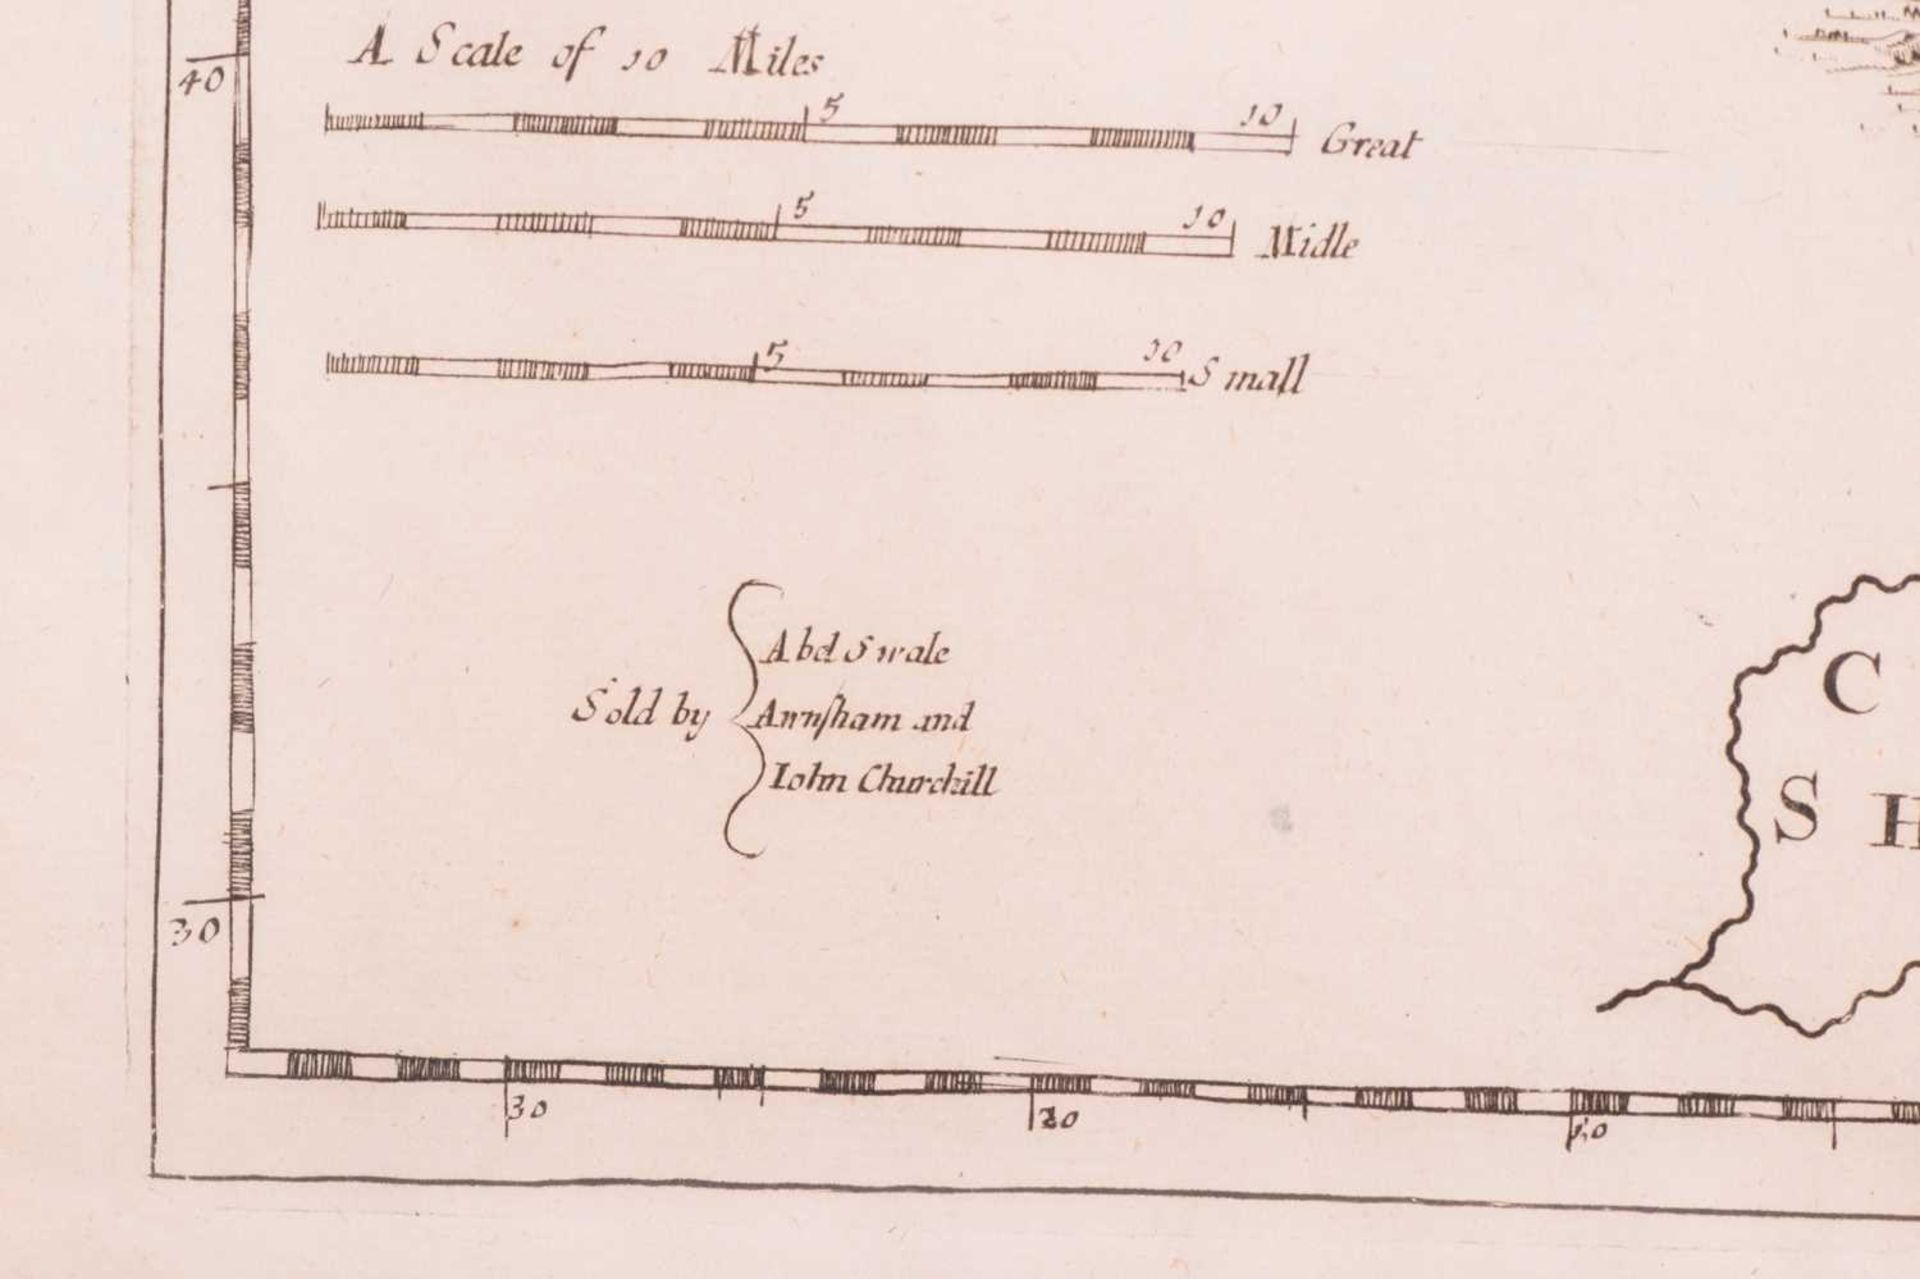 A Scale of 10 Miles
40
5
10
Great
5
10
Midle
5
10
Small
Sold by
Abel Swale
Awnſham and
Iohn Churchill
C
S H
30
30
20
10